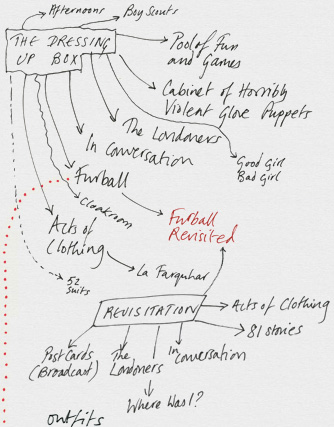 Afternoons
Boy Scouts
THE DRESSING
UP BOX
Pool of Fun
and Games
Cabinet of Horribly
Violent Glove Puppets
The Londoners
In Conversation
Good Girl
Bad Girl
Furball
Cloakroom
Furball
Revisited
Acts of
Clothing
La Farquhar
52
Suits
REVISITATION
Acts of Clothing
81 stories
Post Cards
(Broadcast)
The
Londoners
In
Conversation
Where Was I?
outfits